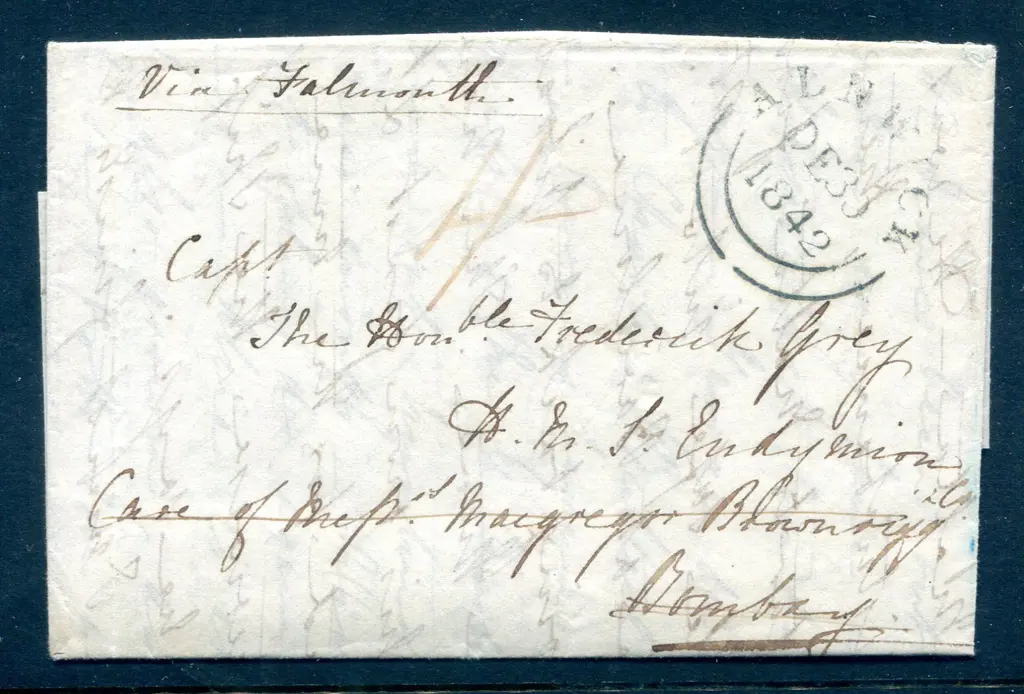 Via Falmouth
ALNWICK
DE30
1842
1/-
Capt
The Honble. Frederick Grey
H. M. S. Endymion
Care of Messrs. Macgregor Brownrigg & Co.
Bombay